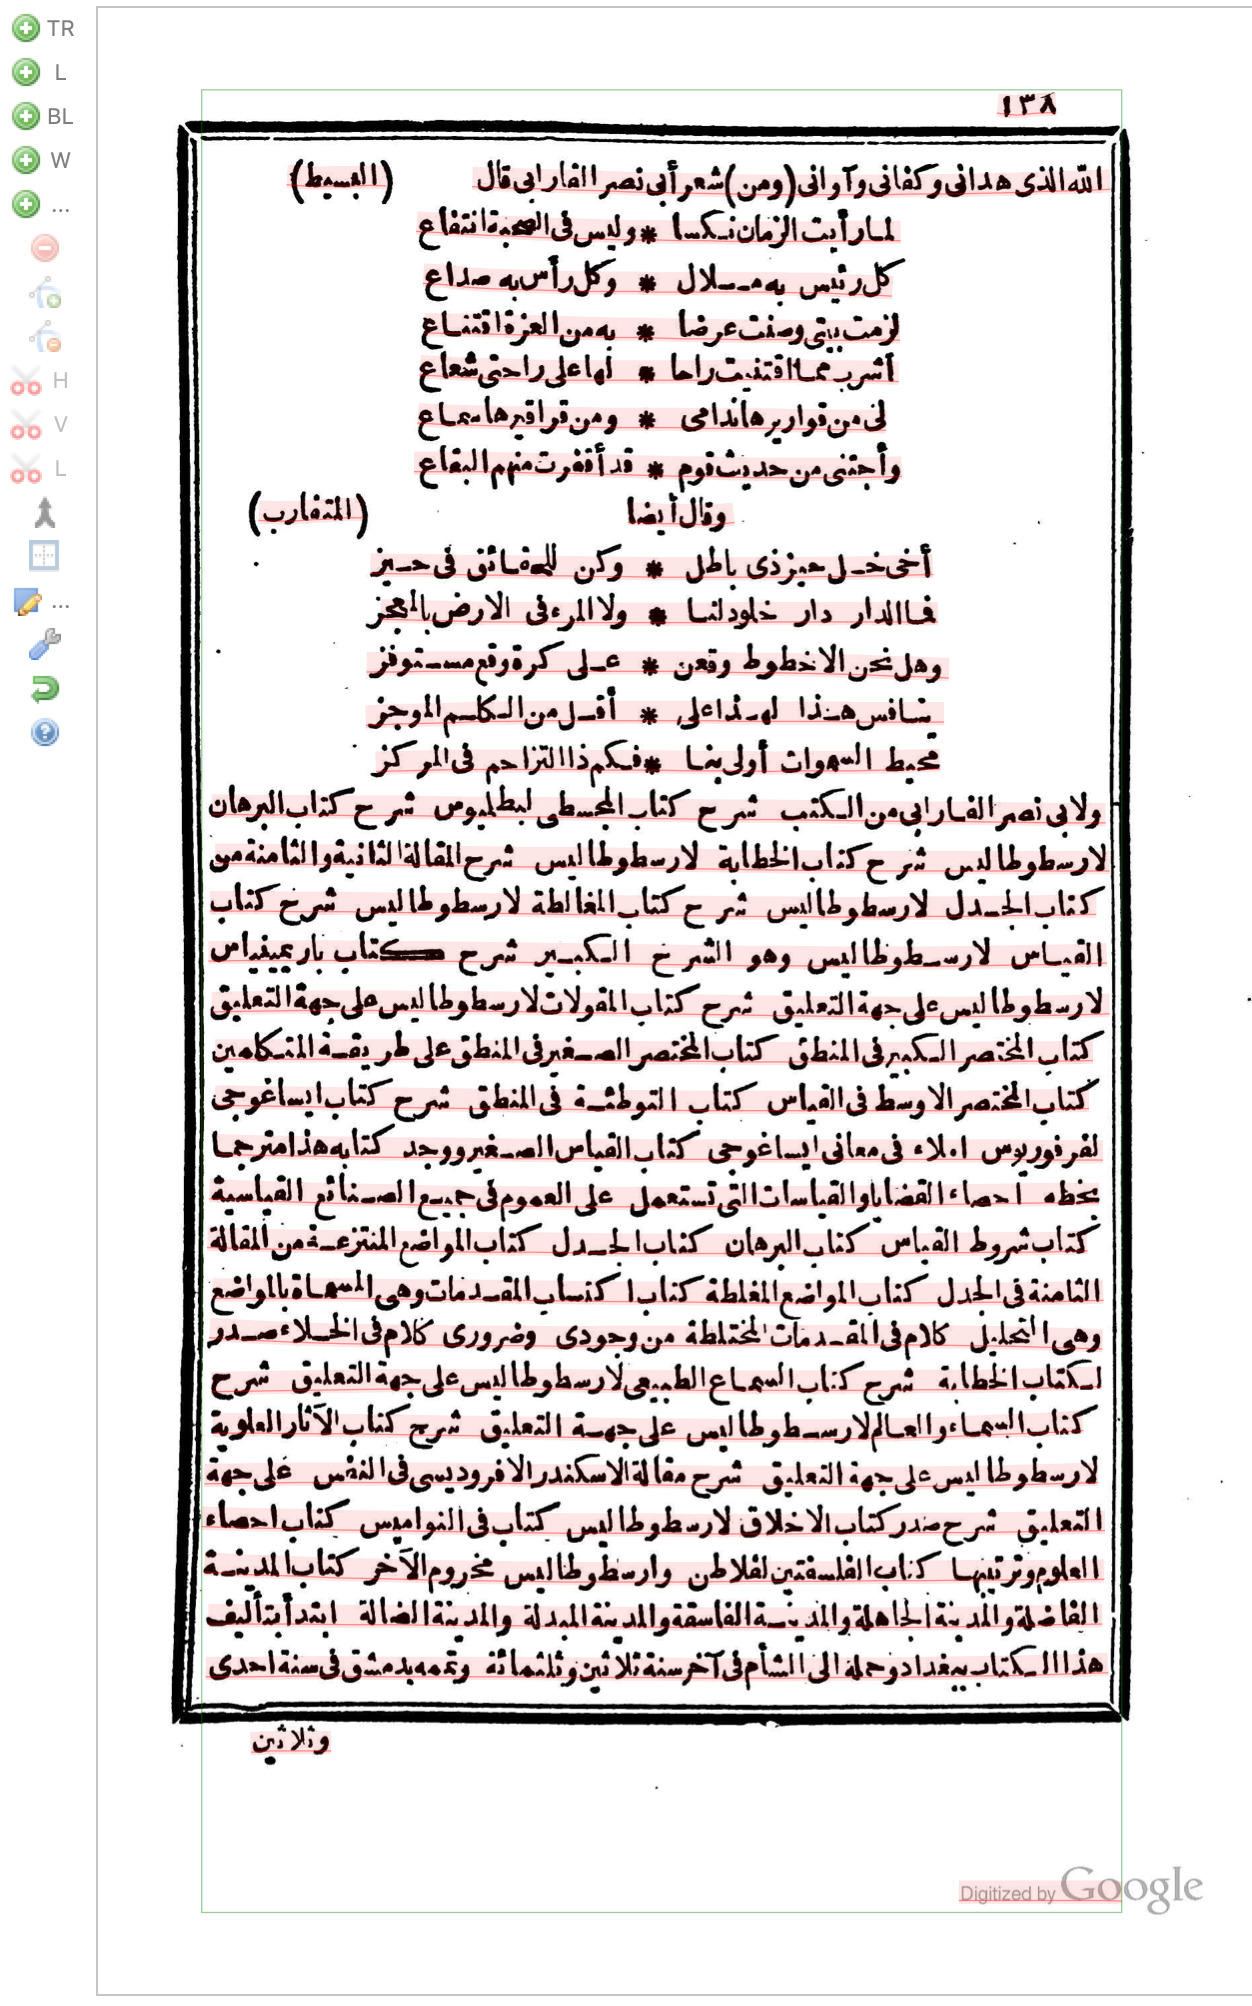 TR
L
BL
W
...
H
V
L
...
١٣٨
الله الذى هدانى وكفانى وآوانى (ومن) شعر أبى نصر الفارابى قال (البسيط)
لما رأيت الزمان نكسا * وليس فى الصحبة انتفاع
كل رئيس به ملال * وكل رأس به صداع
لزمت بيتى وصنت عرضا * به من العزة اقتناع
أشرب مما اقتنيت راحا * لها على راحتى شعاع
لى من قواريرها ندامى * ومن قراقيرها سماع
وأجتنى من حديث قوم * قد أقفرت منهم البقاع
وقال أيضا (المتقارب)
أخى خل حيز ذى باطل * وكن للحقائق فى حيز
فما الدار دار خلود لنا * ولا المرء فى الارض بالمعجز
وهل نحن الا خطوط وقعن * على كرة وقع مستوفز
ينافس هذا لهذا على * أقل من الكلم الموجز
محيط السموات أولى بنا * فكم ذا التزاحم فى المركز
ولابى نصر الفارابى من الكتب شرح كتاب المجسطى لبطليموس شرح كتاب البرهان
لارسطوطاليس شرح كتاب الخطابة لارسطوطاليس شرح المقالة الثانية والثامنة من
كتاب الجدل لارسطوطاليس شرح كتاب المغالطة لارسطوطاليس شرح كتاب
القياس لارسطوطاليس وهو الشرح الكبير شرح كتاب باريمينياس
لارسطوطاليس على جهة التعليق شرح كتاب المقولات لارسطوطاليس على جهة التعليق
كتاب المختصر الكبير فى المنطق كتاب المختصر الصغير فى المنطق على طريقة المتكلمين
كتاب المختصر الاوسط فى القياس كتاب التوطئة فى المنطق شرح كتاب ايساغوجى
لفرفوريوس املاء فى معانى ايساغوجى كتاب القياس الصغير ووجد كتابه هذا مترجما
بخطه احصاء القضايا والقياسات التى تستعمل على العموم فى جميع الصنائع القياسية
كتاب شروط القياس كتاب البرهان كتاب الجدل كتاب المواضع المنتزعة من المقالة
الثامنة فى الجدل كتاب المواضع المغلطة كتاب اكتساب المقدمات وهى المسماة بالمواضع
وهى التحليل كلام فى المقدمات المختلطة من وجودى وضرورى كلام فى الخلاء صدر
لكتاب الخطابة شرح كتاب السماع الطبيعى لارسطوطاليس على جهة التعليق شرح
كتاب السماء والعالم لارسطوطاليس على جهة التعليق شرح كتاب الآثار العلوية
لارسطوطاليس على جهة التعليق شرح مقالة الاسكندر الافروديسى فى النفس على جهة
التعليق شرح صدر كتاب الاخلاق لارسطوطاليس كتاب فى النواميس كتاب احصاء
العلوم وترتيبها كتاب الفلسفتين لفلاطن وارسطوطاليس مخروم الآخر كتاب المدينة
الفاضلة والمدينة الجاهلة والمدينة الفاسقة والمدينة المبدلة والمدينة الضالة ابتدأ بتأليف
هذا الكتاب ببغداد وحمله الى الشأم فى آخر سنة ثلاثين وثلثمائة وتممه بدمشق فى سنة احدى
وثلاثين
Digitized by Google